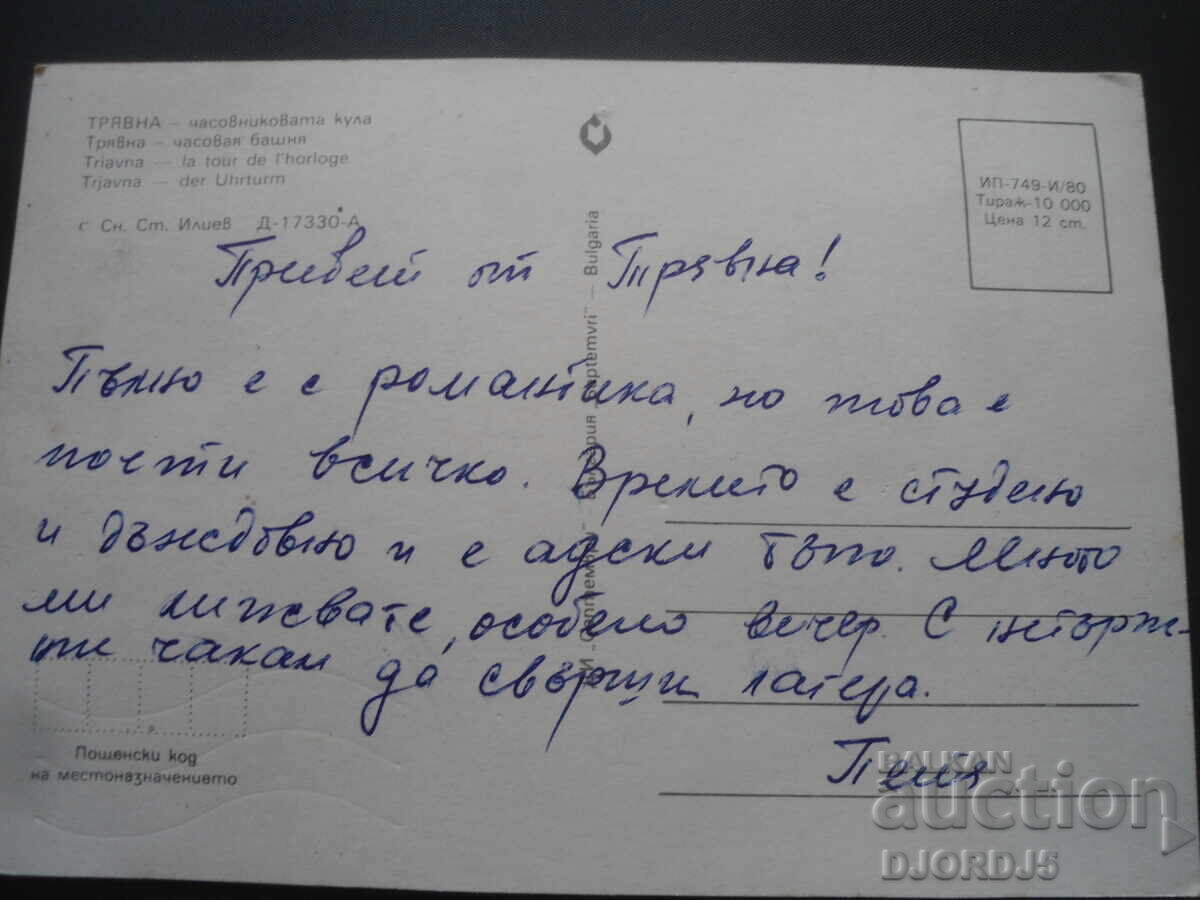 ТРЯВНА – часовниковата кула
Трявна – часовая башня
Triavna — la tour de l'horloge
Trjavna — der Uhrturm
с Сн. Ст. Илиев Д-17330-А
ИП-749-И/80
Тираж-10 000
Цена 12 ст.
Привет от Трявна!
Пълно е с романтика, но това е
почти всичко. Времето е студено
и дъждовно и е адски тъпо. Много
ми липсвате, особено вечер. С нетърпе-
ние чакам да свърши лагера.
Пеня
septemvri" — Bulgaria
Пощенски код
на местоназначението
BALKAN
auction
DJORDJ5